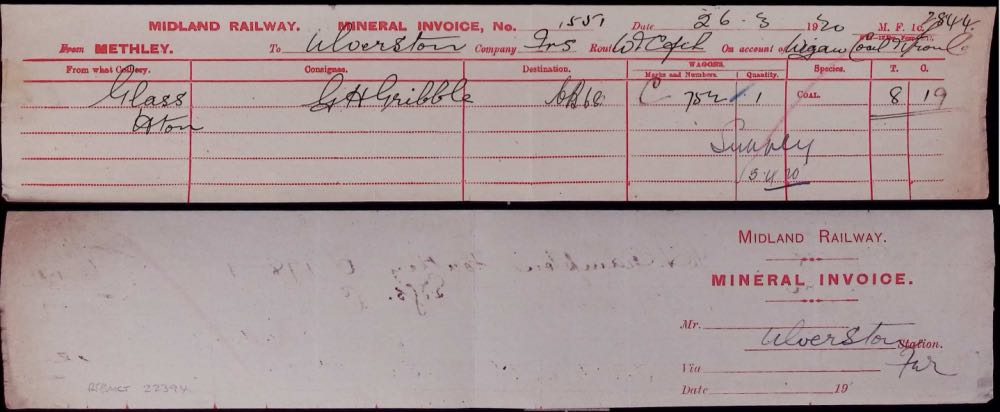 MIDLAND RAILWAY. MINERAL INVOICE, No. 1551 Date 26-3 1920 M. F. 10. 2844
From METHLEY. To Ulverston Company Fns Route On account of Wigan Coal & Iron Co
From what Colliery. Consignee. Destination. WAGONS. Species. T. C.
Marks and Numbers. Quantity.
Glass G H Gribble C 752 1 COAL. 8 19
Hton
Sundry
MIDLAND RAILWAY.
MINERAL INVOICE.
Mr.
Ulverston Station.
Via Fur
Date 19
22394